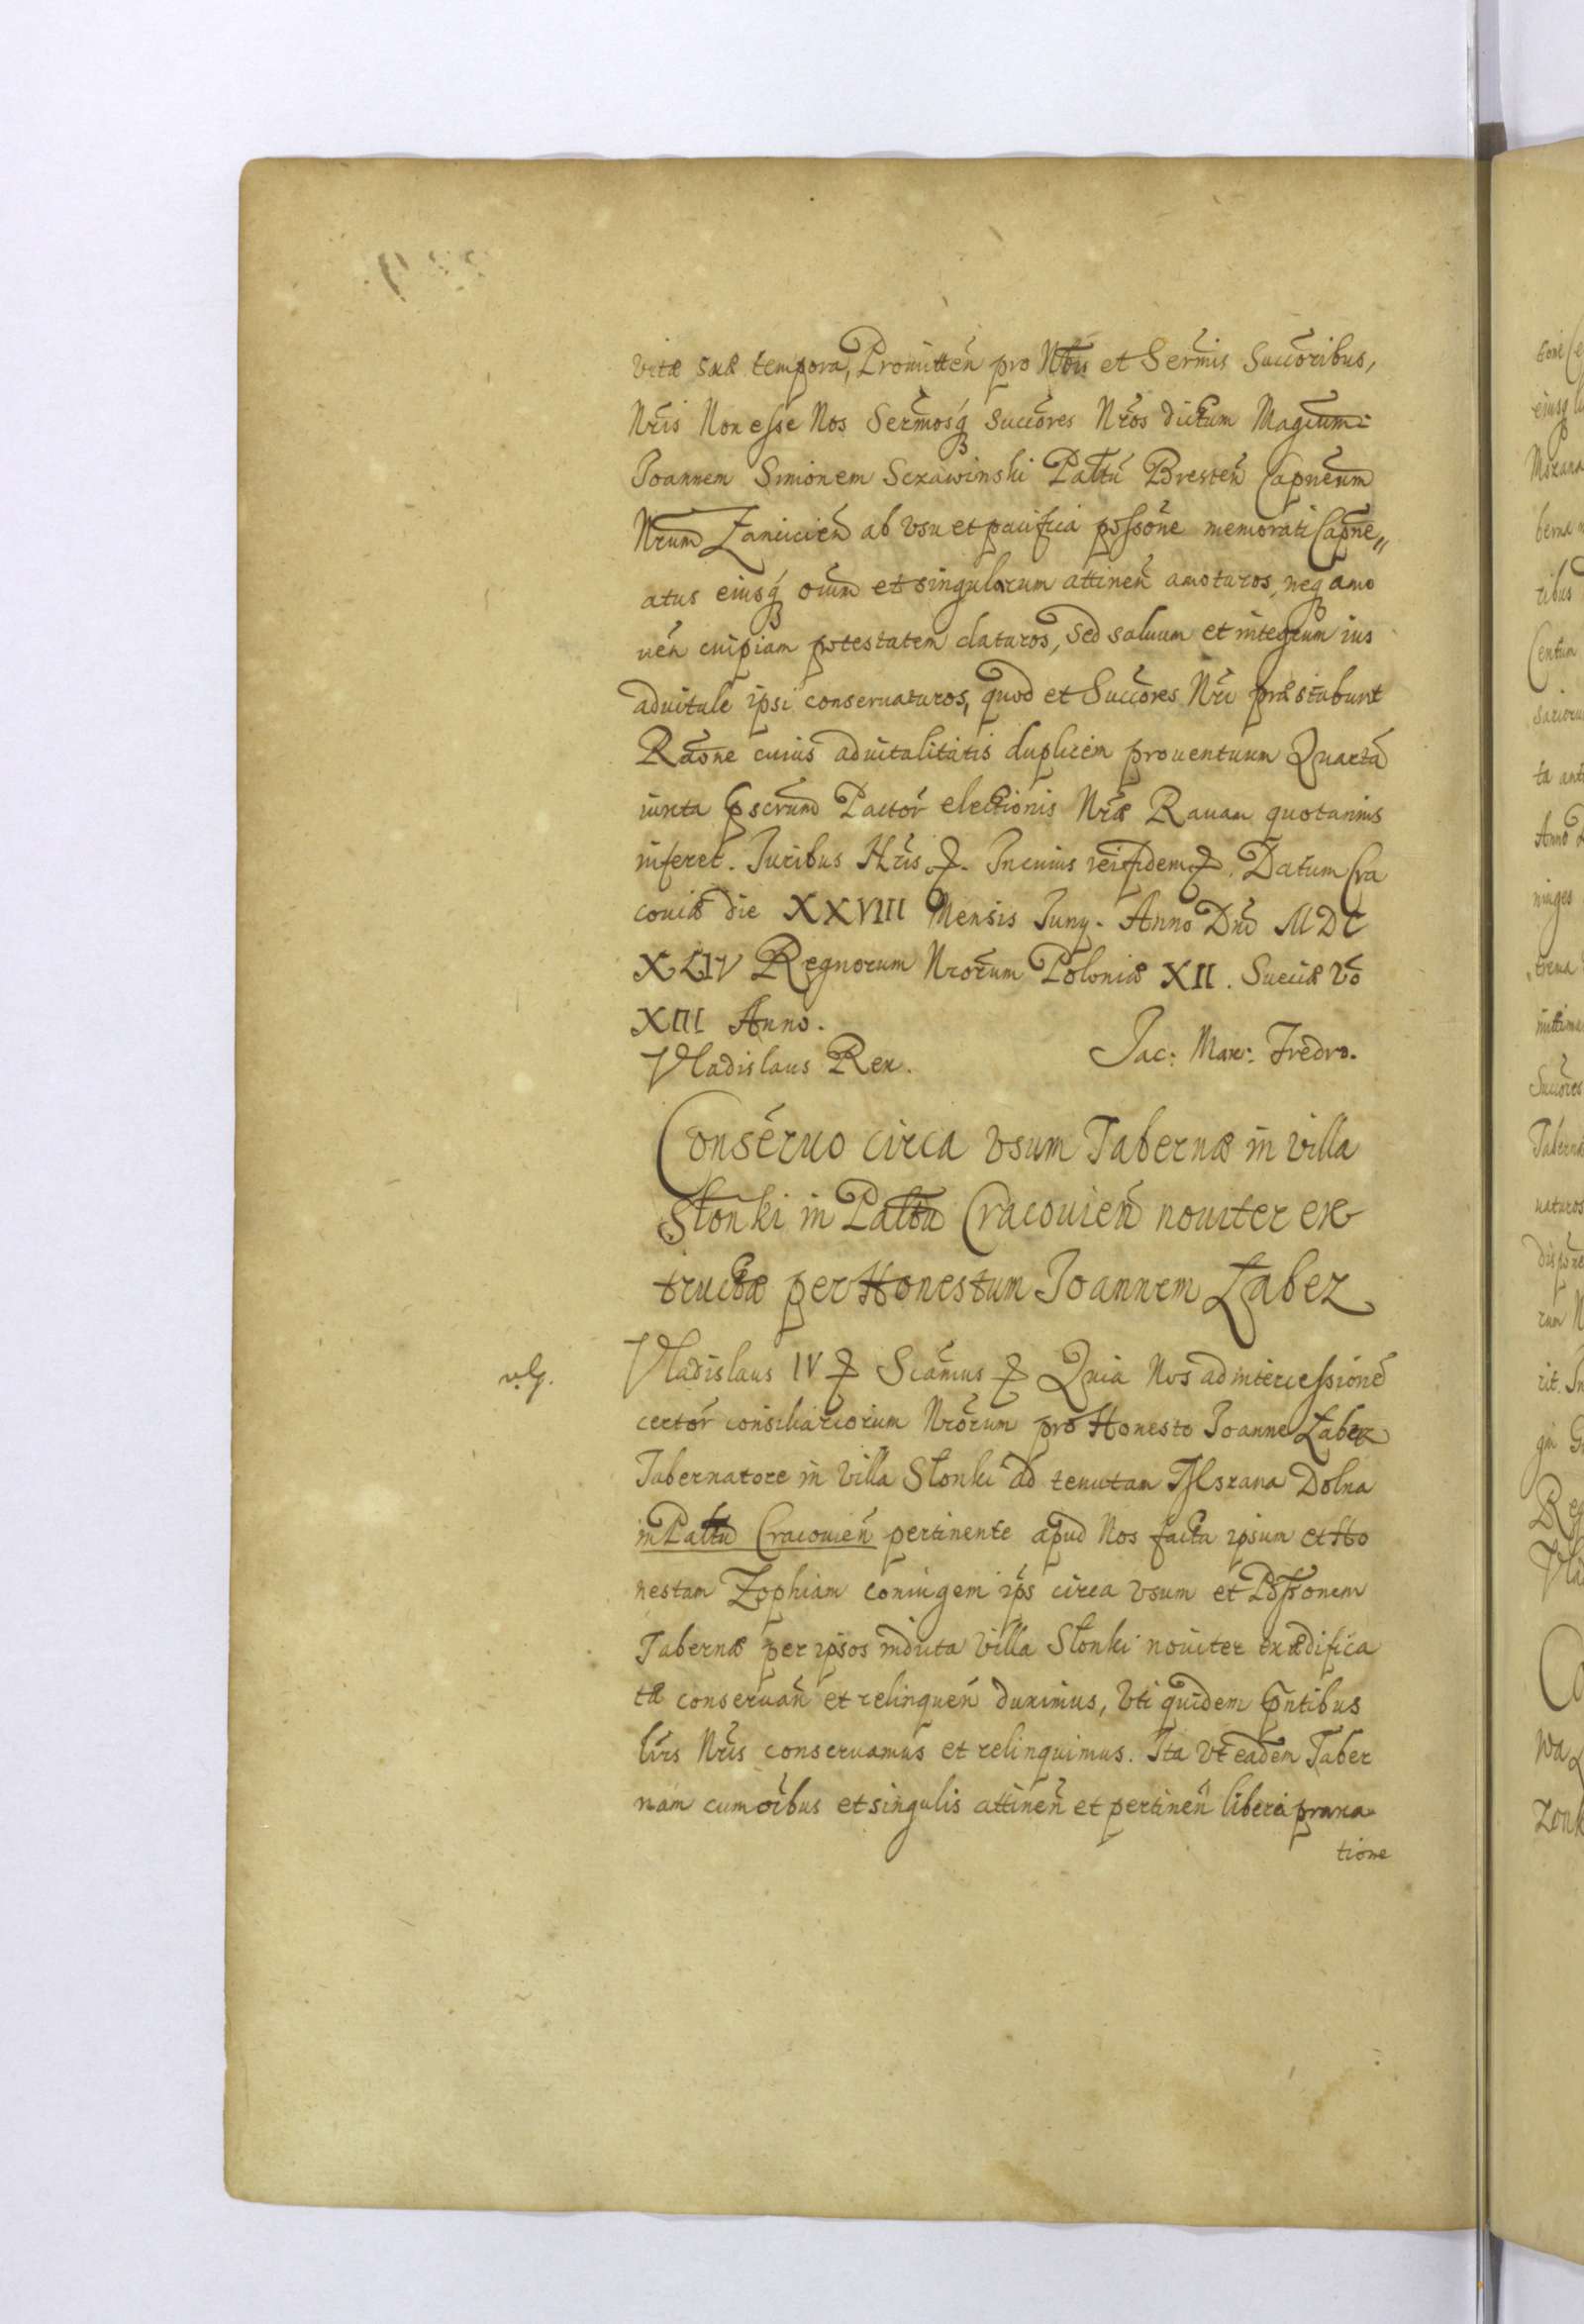 vitæ suæ tempora, Promitteñ pro Nobis et Sermis Succoribus,
Nris Non esse Nos Sermosq́ Succores Nros dictum Magcum
Joannem Simionem Sczawinski Paltu Bresteñ Capneum
Nrum Łanicicień ab vsu et pacifica possone memorati Capne„
atus eiusq́ oium et singulorum attineñ amoturos, neq amo
ueñ cuipiam potestatem daturos, Sed saluum et integrum ius
aduitale ipsi conseruaturos, quod et Succores Nri præstabunt
Raone cuius aduitalitatis duplicem prouentuum Quartã
iuxta pscrum Pactor̃ electionis Nræ Rauam quotannis
inferet. Juribus Nris &. In cuius rei fidem &. Datum Cra
couiæ die XXVIII Mensis Juny. Anno Dni MDC
XLIV Regnorum Nrorum Poloniæ XII. Sueciæ Vo
XIII Anno.
Vladislaus Rex.
Jac: Max: Fredro.
Conseruo circa vsum Tabernæ in villa
Słonki in Paltu Cracouień nouiter ex
tructæ per Honestum Joannem Łabez
Vladislaus IV & Scamus & Quia Nos ad intercessionẽ
certor̃ consiliariorum Nrorum pro Honesto Joanne Łabez
Tabernatore in Villa Słonki ad tenutam Mszana Dolna
in Paltu Cracouień pertinente apud Nos facta ipsum et Ho
nestam Zophiam coniugem ips circa vsum et Possonem
Tabernæ per ipsos in dicta villa Słonki nouiter exædifica
tæ conseruañ et relinqueñ duximus, Vti quidem pntibus
lris Nris conseruamus et relinquimus. Ita vt eadem Taber
nam cum oibus et singulis attineñ et pertineñ libera prona
tione